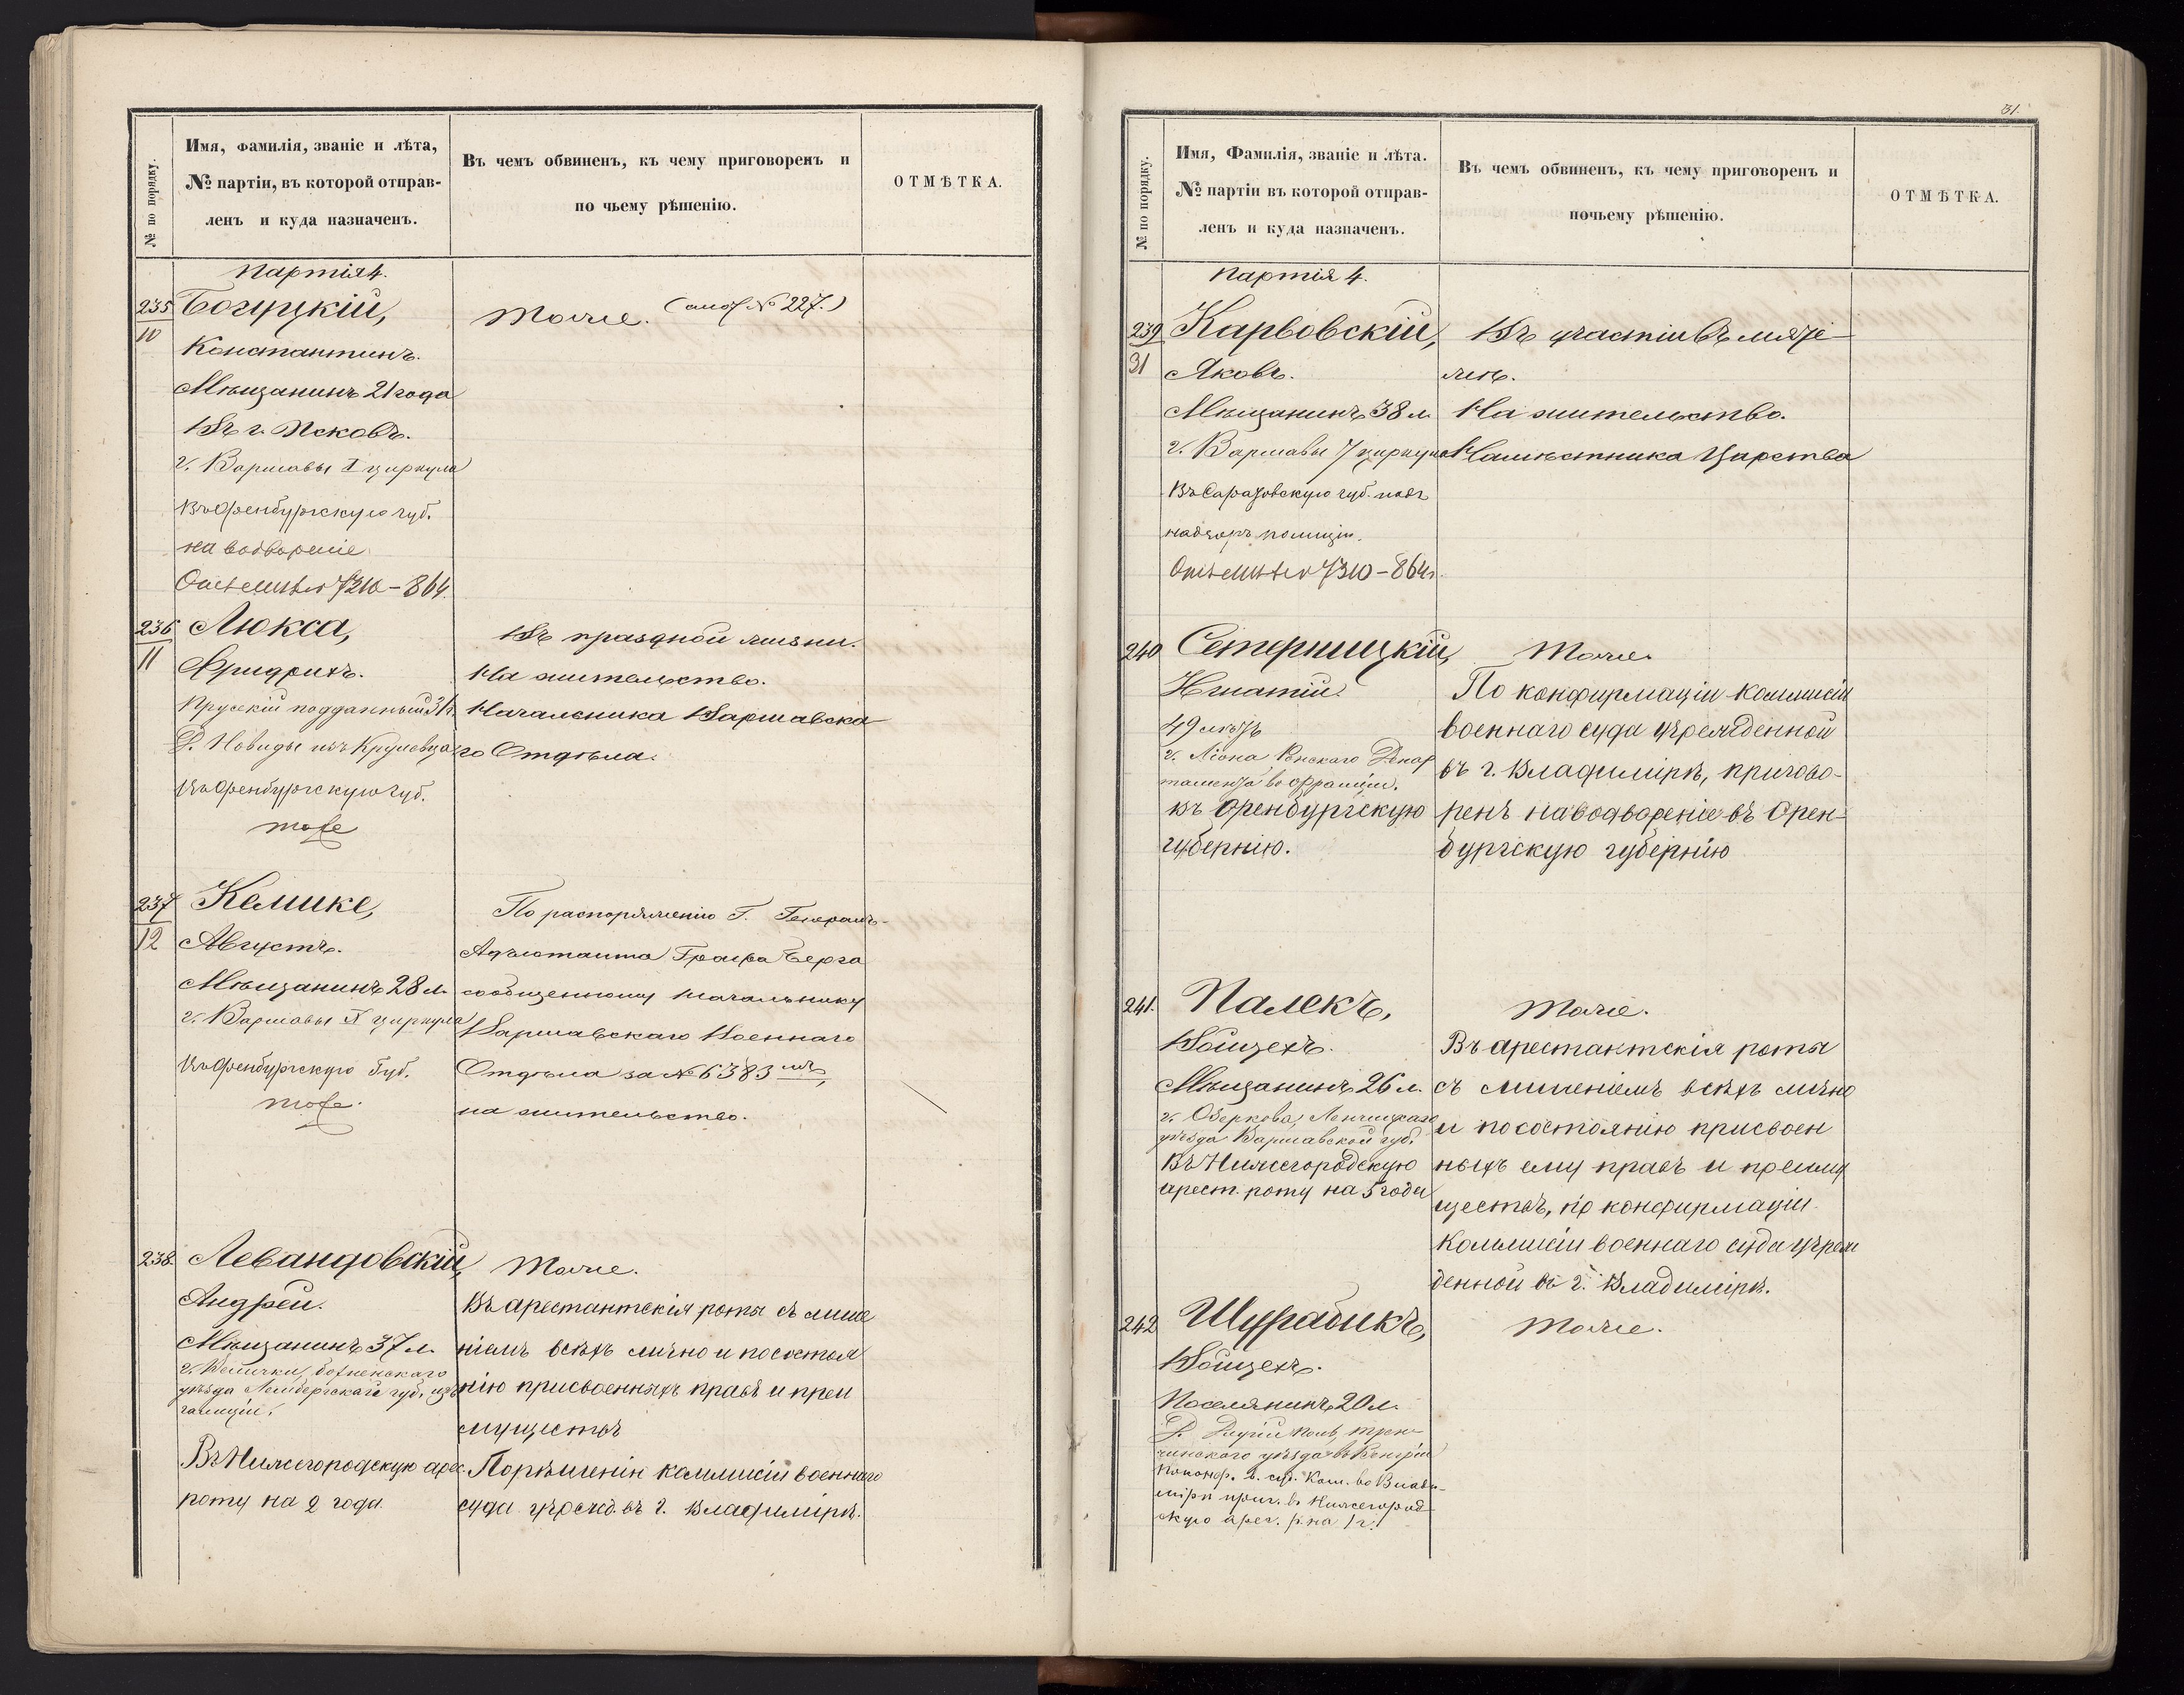 № по порядку.
Имя, фамилія, званіе и лѣта,
№ партіи, въ которой отправ-
ленъ и куда назначенъ.
Въ чемъ обвиненъ, къ чему приговоренъ и
по чьему рѣшенію.
ОТМѢТКА.
Партія 4.
235
10
Богуцкій,
Константинъ.
Мѣщанинъ 21 года
Въ г. Псковъ.
г. Варшавы I циркула
Въ Оренбургскую губ.
на водвореніе
7210-864.
Тоже. (смот № 227.)
236
11
Люкса,
Фридрихъ.
Прускій подданный
Д.
Въ Оренбургскую губ.
тоже
Въ праздной жизни.
На жительство.
Начальника Варшавска
го Отдѣла.
237
12
Кемике,
Августъ.
Мѣщанинъ 28 л.
г. Варшавы циркула
Въ Оренбургскую Губ.
тоже.
По распоряженію Г. Генералъ-
Адъютанта Графа Берга
сообщенному Начальнику
Варшавскаго Военнаго
Отдѣла за № 6383мъ,
на жительство.
238.
Левандовскій,
Андрей.
Мѣщанинъ 37 л.
г. Велички, Бохненскаго
уѣзда Лембергской губ. изъ
Галиціи.
Въ Нижегородскую арес.
роту на 2 года.
Тоже.
Въ арестантскія роты съ лише
ніемъ всѣхъ лично и по состоя
нію присвоенныхъ правъ и преи
муществъ
По рѣшенію коммисіи военнаго
суда учрежд. въ г. Владимірѣ.
31.
№ по порядку.
Имя, Фамилія, званіе и лѣта.
№ партіи въ которой отправ-
ленъ и куда назначенъ.
Въ чемъ обвиненъ, къ чему приговоренъ и
почьему рѣшенію.
ОТМѢТКА.
Партія 4.
239
31
Карвовскій,
Яковъ.
Мѣщанинъ 38 л.
г. Варшавы 7 циркула
Въ Саратовскую губ. подъ
надзоръ полиціи.
7310-864г.
Въ участіи въ мяте
жѣ.
На жительство.
Намѣстника Царства
240
Сетерницкій,
Игнатій.
49 лѣтъ
г. Ліона Ронскаго Депар
тамента во Франціи.
въ Оренбургскую
губернію.
Тоже.
По конфирмаціи коммисіи
военнаго суда учрежденной
въ г. Владимірѣ, пригово-
ренъ на водвореніе въ Орен-
бургскую губернію
241.
Палекъ,
Войцехъ.
Мѣщанинъ 26 л.
г. Озеркова, Ленчицкаго
уѣзда Варшавской губ.
Въ Нижегородскую
арест. роту на 5 года
Тоже.
Въ арестантскія роты
съ лишеніемъ всѣхъ лично
и по состоянію присвоен
ныхъ ему правъ и преиму
ществъ, по конфирмаціи
Коммисіи военнаго суда учреж
денной въ г. Владимірѣ.
242
Шурабикъ,
Войцехъ.
Поселянинъ 20 л.
Д. Трен-
чинскаго уѣзда въ Венгріи
По конф. в. суд. Ком. во Влади-
мірѣ приг. въ Нижегород
скую арес. р. на 1 г.
Тоже.